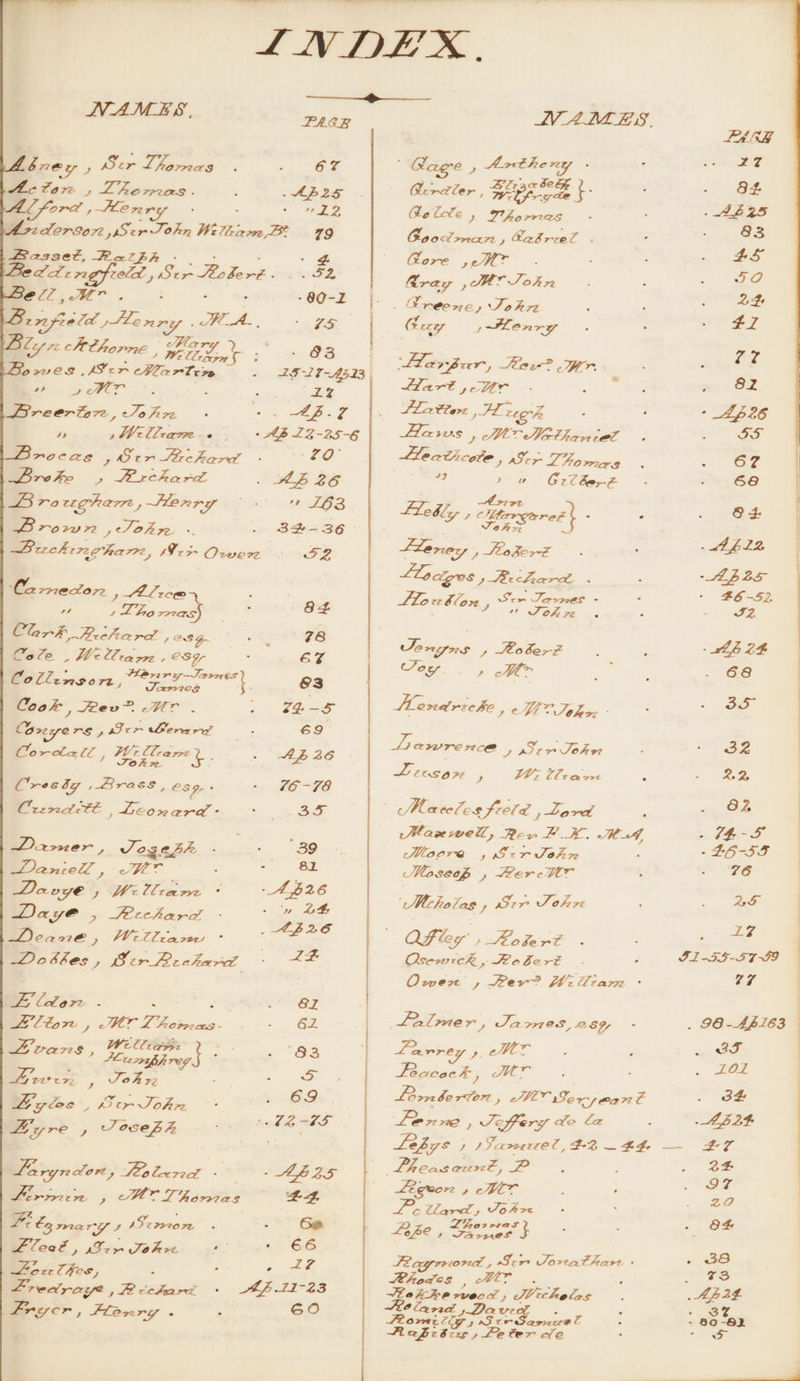 INDEX.
NAMES. PAGE
Abney, Sir Thomas 67
Acton, Thomas Ap 25
Alford, Henry " 12
Anderson, Sir John William, Bt. 79
Basset, Ralph 4
Beddingfield, Sir Robert 52
Bell, Mr 80-1
Binfield, Henry. M.A. 75
Blynckthorne, Mary } William } 83
Bowes, Sir Martin 15-17-Ap 13
" , Mr 17
Breerton, John Ap. 7
" , William Ap 12-25-6
Brocas, Sir Richard 70
Broke, Richard Ap 26
Brougham, Henry " 163
Brown, John 34-36
Buckingham, Sir Owen 52
Camedon, Alice }
" , Thomas } 84
Clark, Richard, esq. 78
Cole, William, esq 67
Collinson, Henry-James } James } 83
Cook, Revd. Mr. 74-5
Conyers, Sir Gerard 69
Cordall, William } John } Ap 26
Crosby, Brass, esq. 76-78
Cunditt, Leonard 35
Damer, Joseph 39
Daniell, Mr 81
Davye, William Ap 26
Daye, Richard " 24
Deane, William Ap 26
Dobbes, Sir Richard 14
Eldon 81
Elton, Mr Thomas 61
Evans, William } Humphrey } 83
Ewtin, John 5
Eyles, Sir John 69
Eyre, Joseph 72-75
Faryndon, Roland Ap 25
Firmin, Mr. Thomas 44
Fitzmary, Simon 6
Fleet, Sir John 66
Foulkes, 17
Fredraye, Richard Ap. 11-23
Fryer, Henry 60
NAMES. PAGE
Gage, Anthony 17
Girdler, Elizabeth } Wilfryde } 84
Golde, Thomas Ap 25
Goodman, Gabriel 83
Gore, Mr 45
Gray, Mr John 50
Greene, John 24
Guy, Henry 41
Harpur, Revd. Mr. 77
Hart, Mr 81
Hatton, Hugh Ap 26
Haws, Mr Nathaniel 55
Heathcote, Sir Thomas 67
" , " Gilbert 68
Helly, Ann } Margaret } John } 84
Heney, Robert Ap 12
Hodges, Richard Ap 25
Houblon, Sir James 46-52
" John 52
Jengns, Robert Ap 24
Joy, Mr 68
Kendricke, Mr. John 35
Lawrence, Sir John 32
Liuson, William 22
Macclesfield, Lord 82
Maxwell, Rev H. K. M.A, 74-5
Moore, Sir John 46-55
Mossop, Rev Mr 76
Nicholas, Sir John 25
Offley, Robert 17
Oscwick, Robert 51-55-57-59
Owen, Revd. William 77
Palmer, James, esq, 98-Ap 163
Parrey, Mr 35
Peacock, Mr 101
Pemberton, Mr Serjeant 34
Penne, Jeffery de la Ap 24
Pepys, Samuel, 42-44 — 47
Pheasaunt, P 24
Pigeon, Mr 97
Pollard, John 20
Pope, Thomas } James } 84
Raymond, Sir Jonathan 38
Rhodes, Mr 73
Rokkewood, Nicholas Ap 24
Roland, David 37
Romilly, Sir Samuel 80-81
Rupibus, Peter de 5